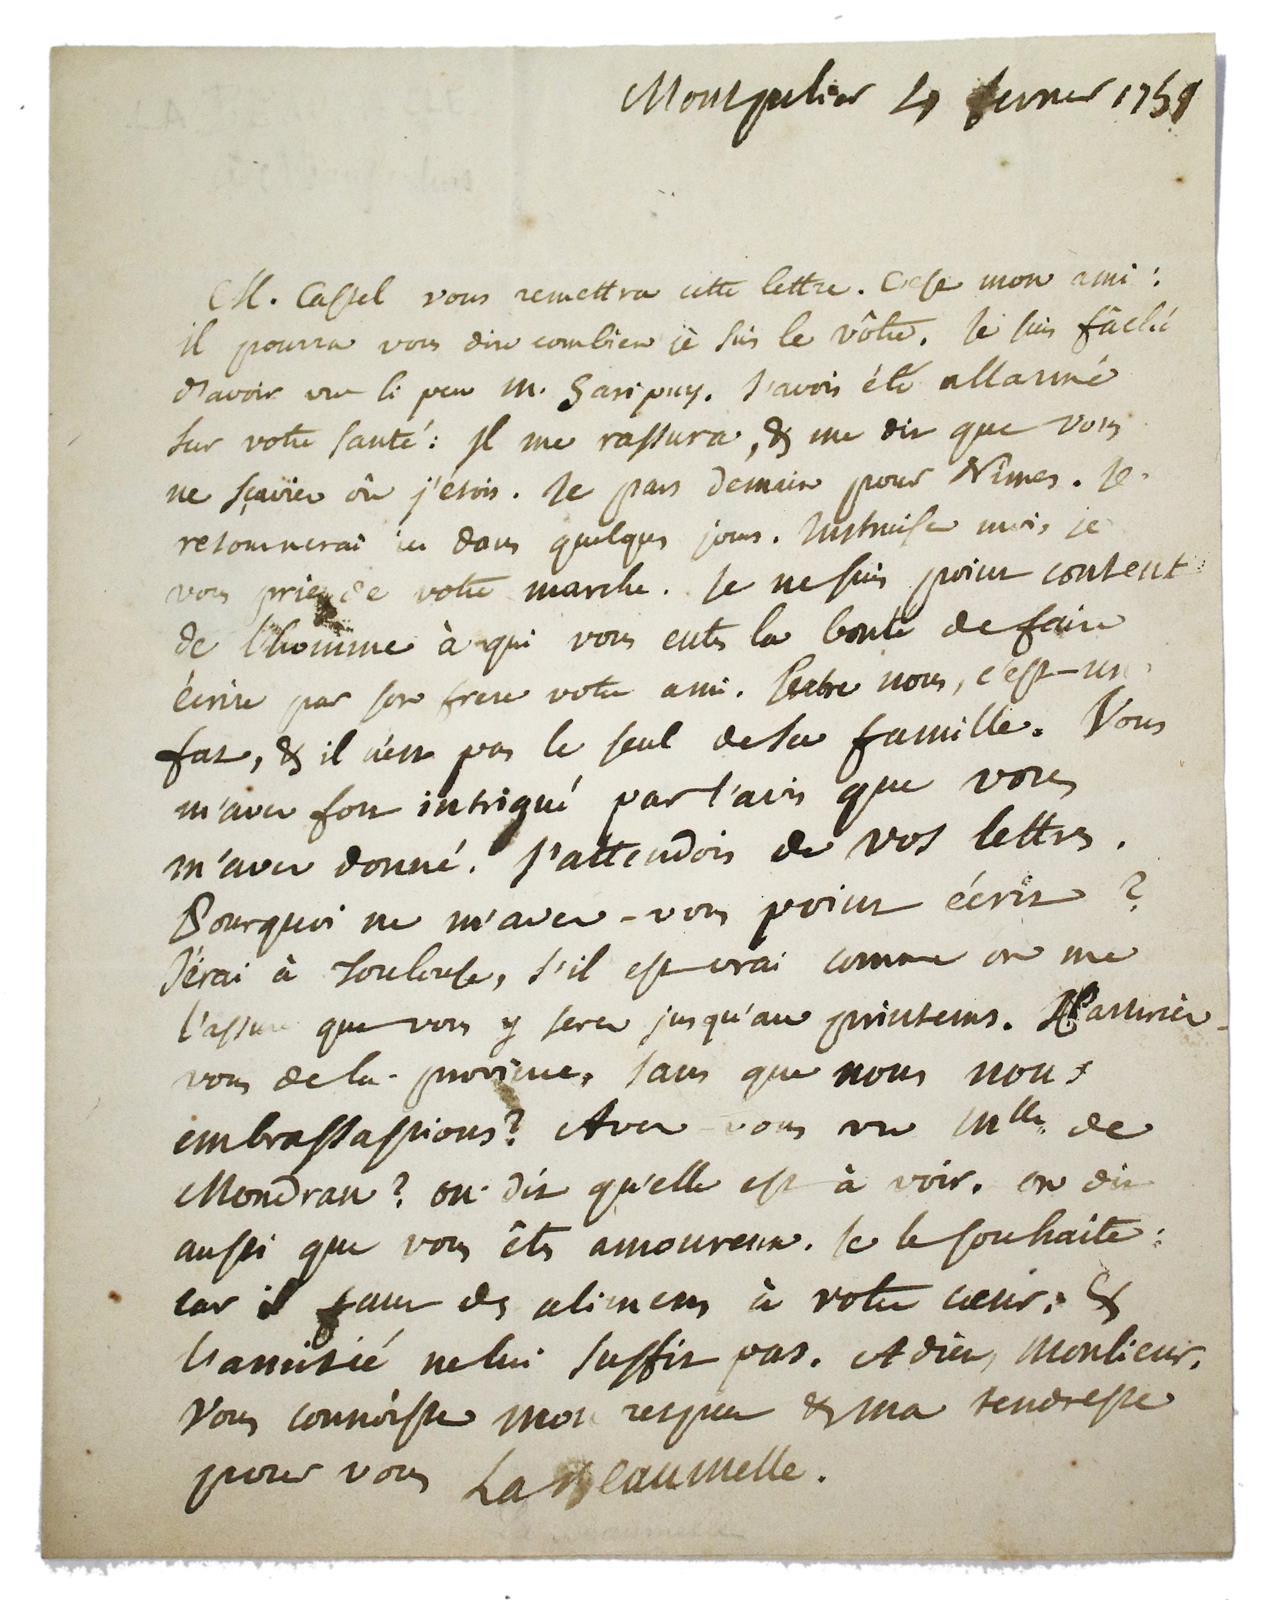 Montpelier 4 fevrier 1759
M. Castel vous remettra cette lettre. C'est mon ami :
il pourra vous dire combien je suis le vôtre. Je suis fâché
d'avoir vu si peu M. Garipuy. J'avois été allarmé
sur votre santé : il me rassura, & me dit que vous
ne sçaviez où j'etois. Je pars demain pour Nîmes. Je
retournerai ici dans quelques jours. Instruisez moi, je
vous prie, de votre marche. Je ne suis point content
de l'homme à qui vous eutes la bonté de faire
écrire par son frere votre ami. Entre nous, c'est un
fat, & il n'est pas le seul de sa famille. Vous
m'avez fort intrigué par l'avis que vous
m'avez donné. J'attendois de vos lettres.
Pourquoi ne m'avez-vous point écrit ?
J'érai à Toulouse, s'il est vrai comme on me
l'assure que vous y serez jusqu'au printems. Partiriez-
vous de la province, sans que nous nous
embrassassions ? Avez vous vu Mlle de
Mondran ? on dit qu'elle est à voir. on dit
aussi que vous êtes amoureux. Je le souhaite :
car il faut des alimens à votre cœur, &
l'amitié ne lui suffit pas. Adieu, Monsieur,
Vous connoissez mon respect & ma tendresse
pour vous La Beaumelle.
La Beaumelle